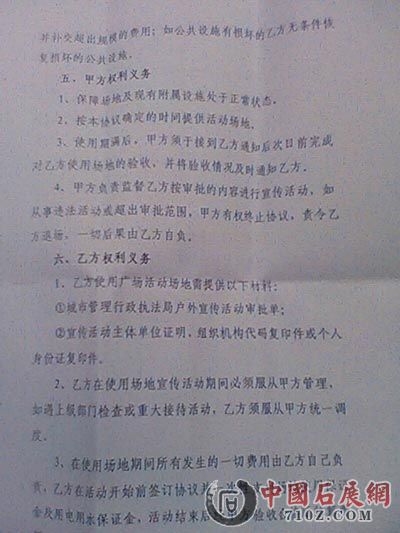 并补交超出规模的费用；如公共设施有损坏的乙方无条件恢
复损坏的公共设施。
五、甲方权利义务
1、保障场地及现有附属设施处于正常状态。
2、按本协议确定的时间提供活动场地。
3、使用期满后，甲方须于接到乙方通知后次日前完成
对乙方使用场地的验收，并将验收情况及时通知乙方。
4、甲方负责监督乙方按审批的内容进行宣传活动，如
从事违法活动或超出审批范围，甲方有权终止协议，责令乙
方退场，一切后果由乙方自负。
六、乙方权利义务
1、乙方使用广场活动场地需提供以下材料：
①城市管理行政执法局户外宣传活动审批单；
②宣传活动主体单位证明、组织机构代码复印件或个人
身份证复印件。
2、乙方在使用场地宣传活动期间必须服从甲方管理，
如遇上级部门检查或重大接待活动，乙方须服从甲方统一调
度。
3、在使用场地期间所有发生的一切费用由乙方自己负
责，乙方在活动开始前签订协议并一次
金及用电用水保证金，活动结束后 验收
中國石展網
7102.COM